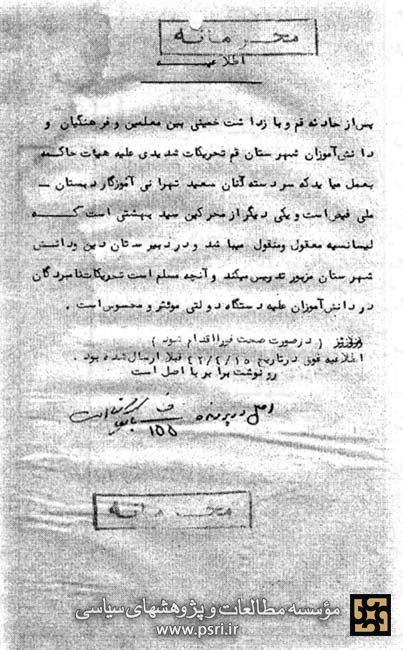 محرمانه
اطلاعیه
پس از حادثه قم و بازداشت خمینی بین معلمین و فرهنگیان و
دانش‌آموزان شهرستان قم تحریکات شدیدی علیه هیات حاکمه
بعمل میاید که سردسته آنان سعید تهرانی آموزگار دبستان -
ملی فیض است و یکی دیگر از محرکین سید بهشتی است که
لیسانسیه معقول ومنقول میباشد و در دبیرستان دین ودانش
شهرستان مزبور تدریس میکند و آنچه مسلم است تحریکات نامبردگان
در دانش‌آموزان علیه دستگاه دولتی موثثر و محسوس است .
( در صورت صحت فورا اقدام شود )
اطلاعیه فوق در تاریخ ۴۲/۴/۱۵ قبلا ارسال شده بود .
رونوشت برابر با اصل است
اصل در پرونده
۱۵۵
محرمانه
مؤسسه مطالعات و پژوهشهای سیاسی
www.psri.ir